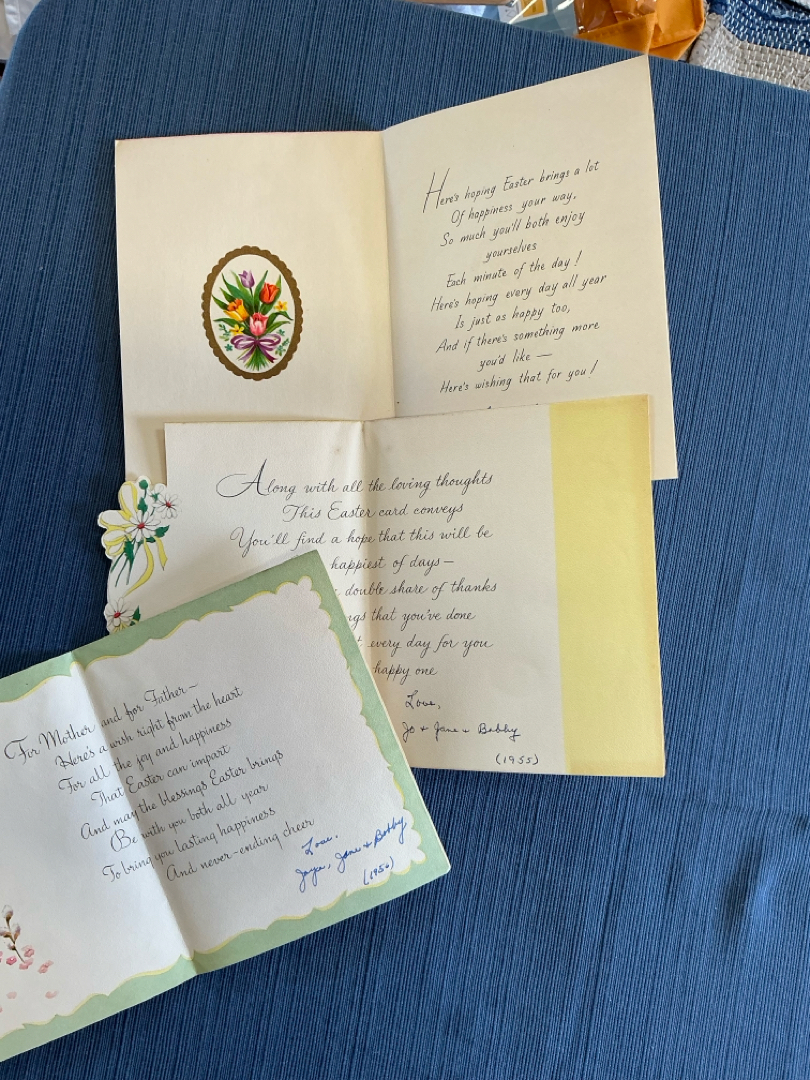 Here's hoping Easter brings a lot
Of happiness your way,
So much you'll both enjoy
yourselves
Each minute of the day!
Here's hoping every day all year
Is just as happy too,
And if there's something more
you'd like —
Here's wishing that for you!
Along with all the loving thoughts
This Easter card conveys
You'll find a hope that this will be
happiest of days —
double share of thanks
ngs that you've done
every day for you
happy one
Love,
Jo + Jane + Bobby
(1955)
For Mother and for Father —
Here's a wish right from the heart
For all the joy and happiness
That Easter can impart
And may the blessings Easter brings
Be with you both all year
To bring you lasting happiness
And never-ending cheer
Love,
Jane + Bobby